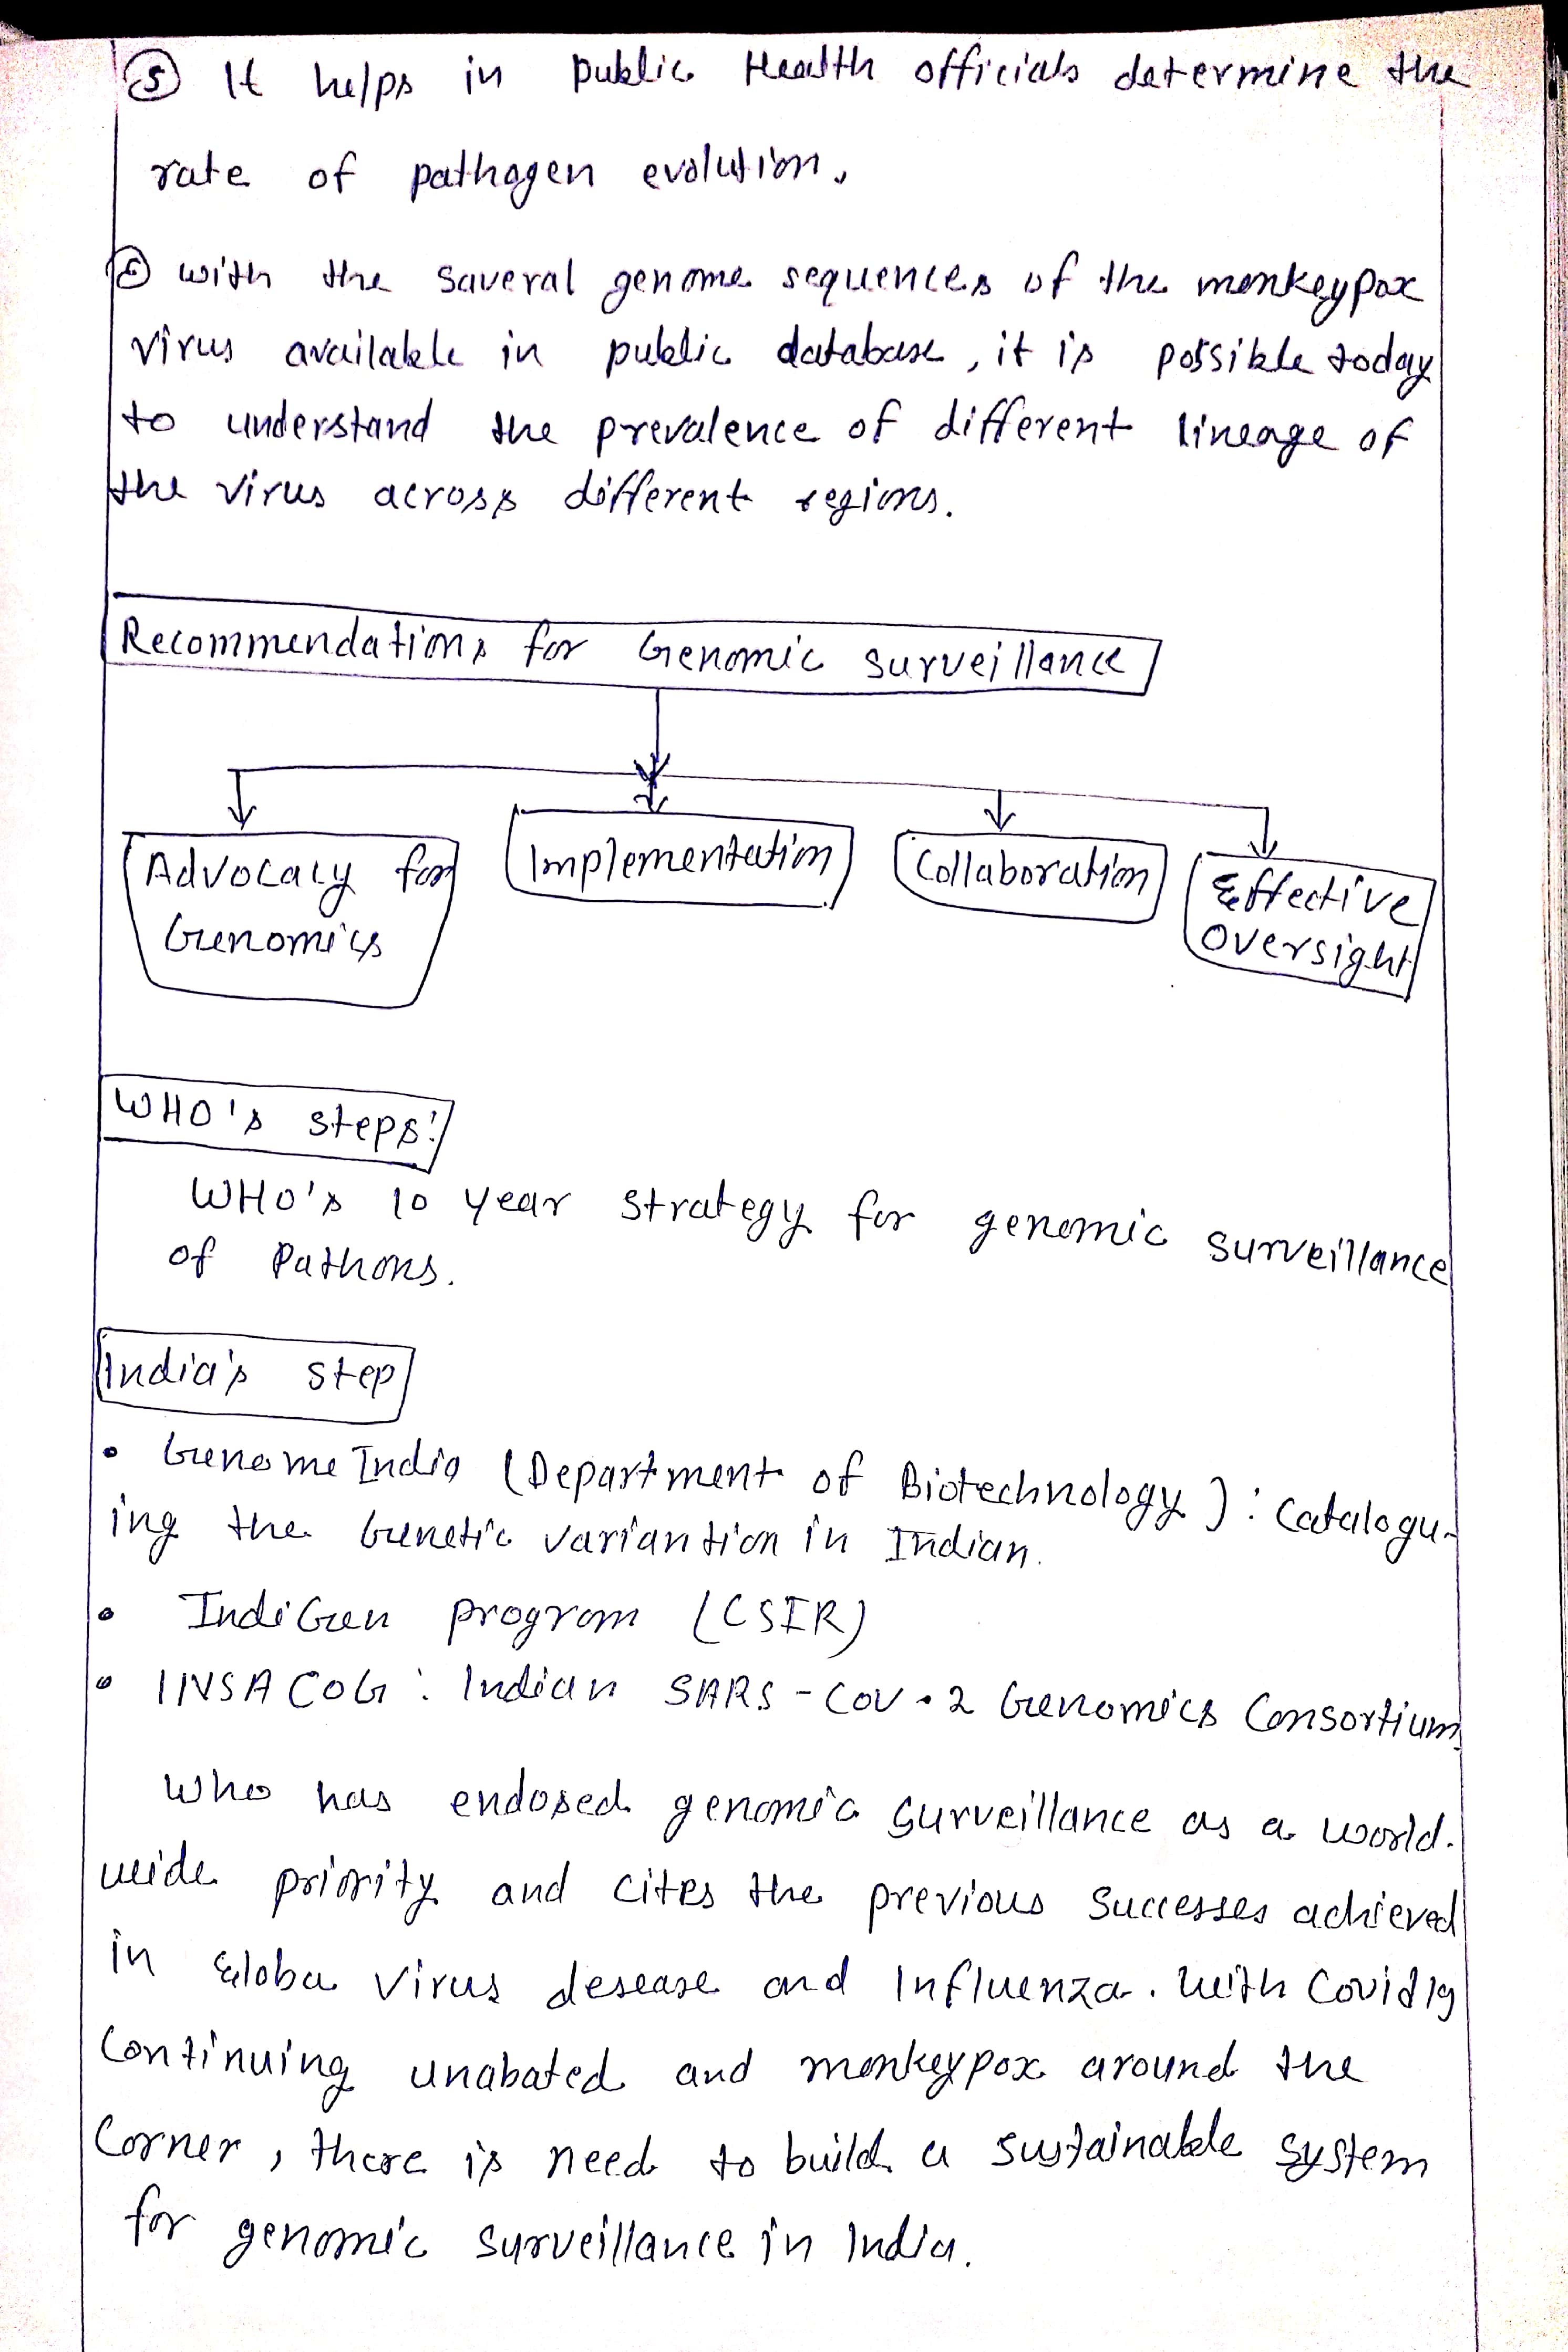 ⑤ It helps in public Health officials determine the
rate of pathogen evolution.
⑥ with the saveral genome sequences of the monkeypox
virus available in public database, it is possible today
to understand the prevalence of different lineage of
the virus across different regions.
Recommendations for Genomic surveillance
Advocacy for
Genomics
Implementation
Collaboration
Effective
Oversight
WHO's steps:
WHO's 10 year strategy for genomic surveillance
of Pathons.
India's step
• Genome India (Department of Biotechnology): Catalogu-
ing the Genetic variantion in Indian.
• IndiGen program (CSIR)
• INSACOG: Indian SARS-COV-2 Genomics Consortium
Who has endosed genomic surveillance as a world-
wide priority and cites the previous successes achieved
in virus desease and Influenza. With Covid19
Continuing unabated and monkeypox around the
Corner, there is need to build a sustainable system
for genomic surveillance in India.